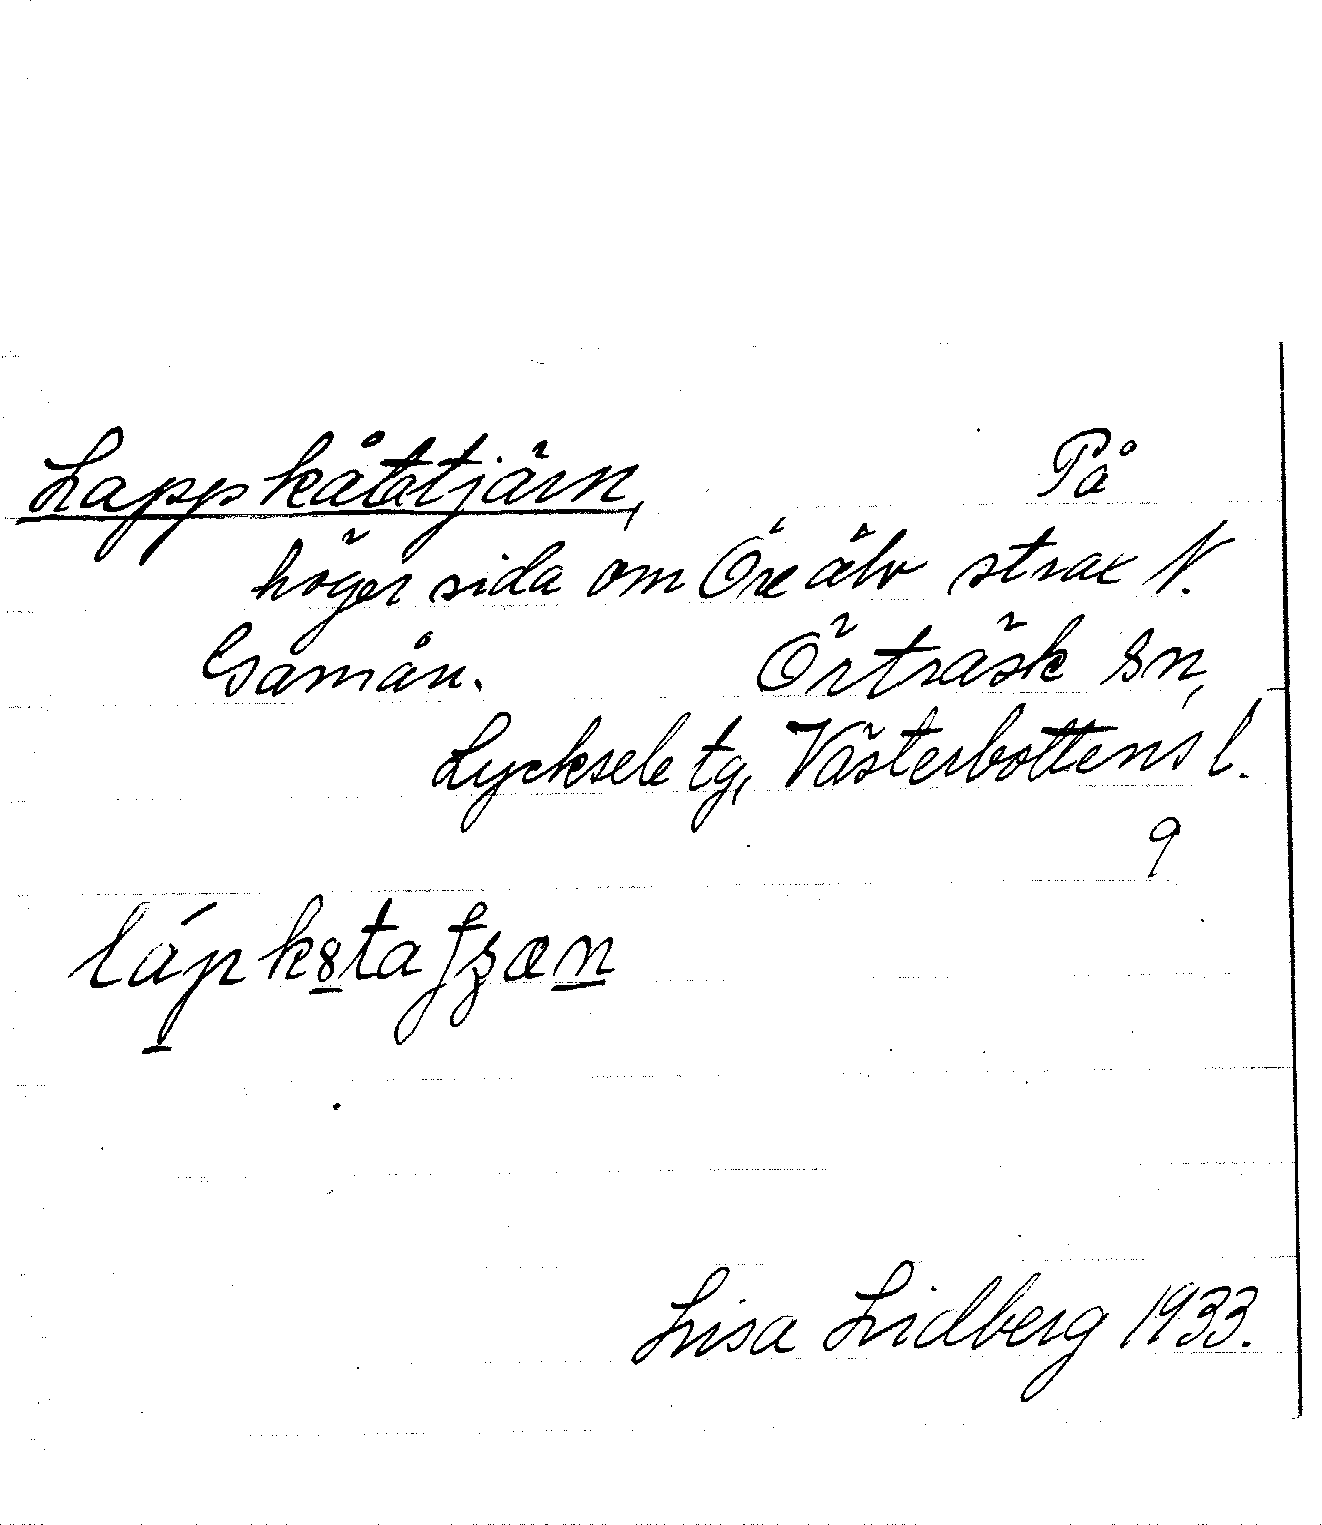 Lappkåttjärn, På
höger sida om Öreälv strax N.
Gamån. Örträsk sn,
Lycksele tg, Västerbottens l.
9
Lisa Lidberg 1933.